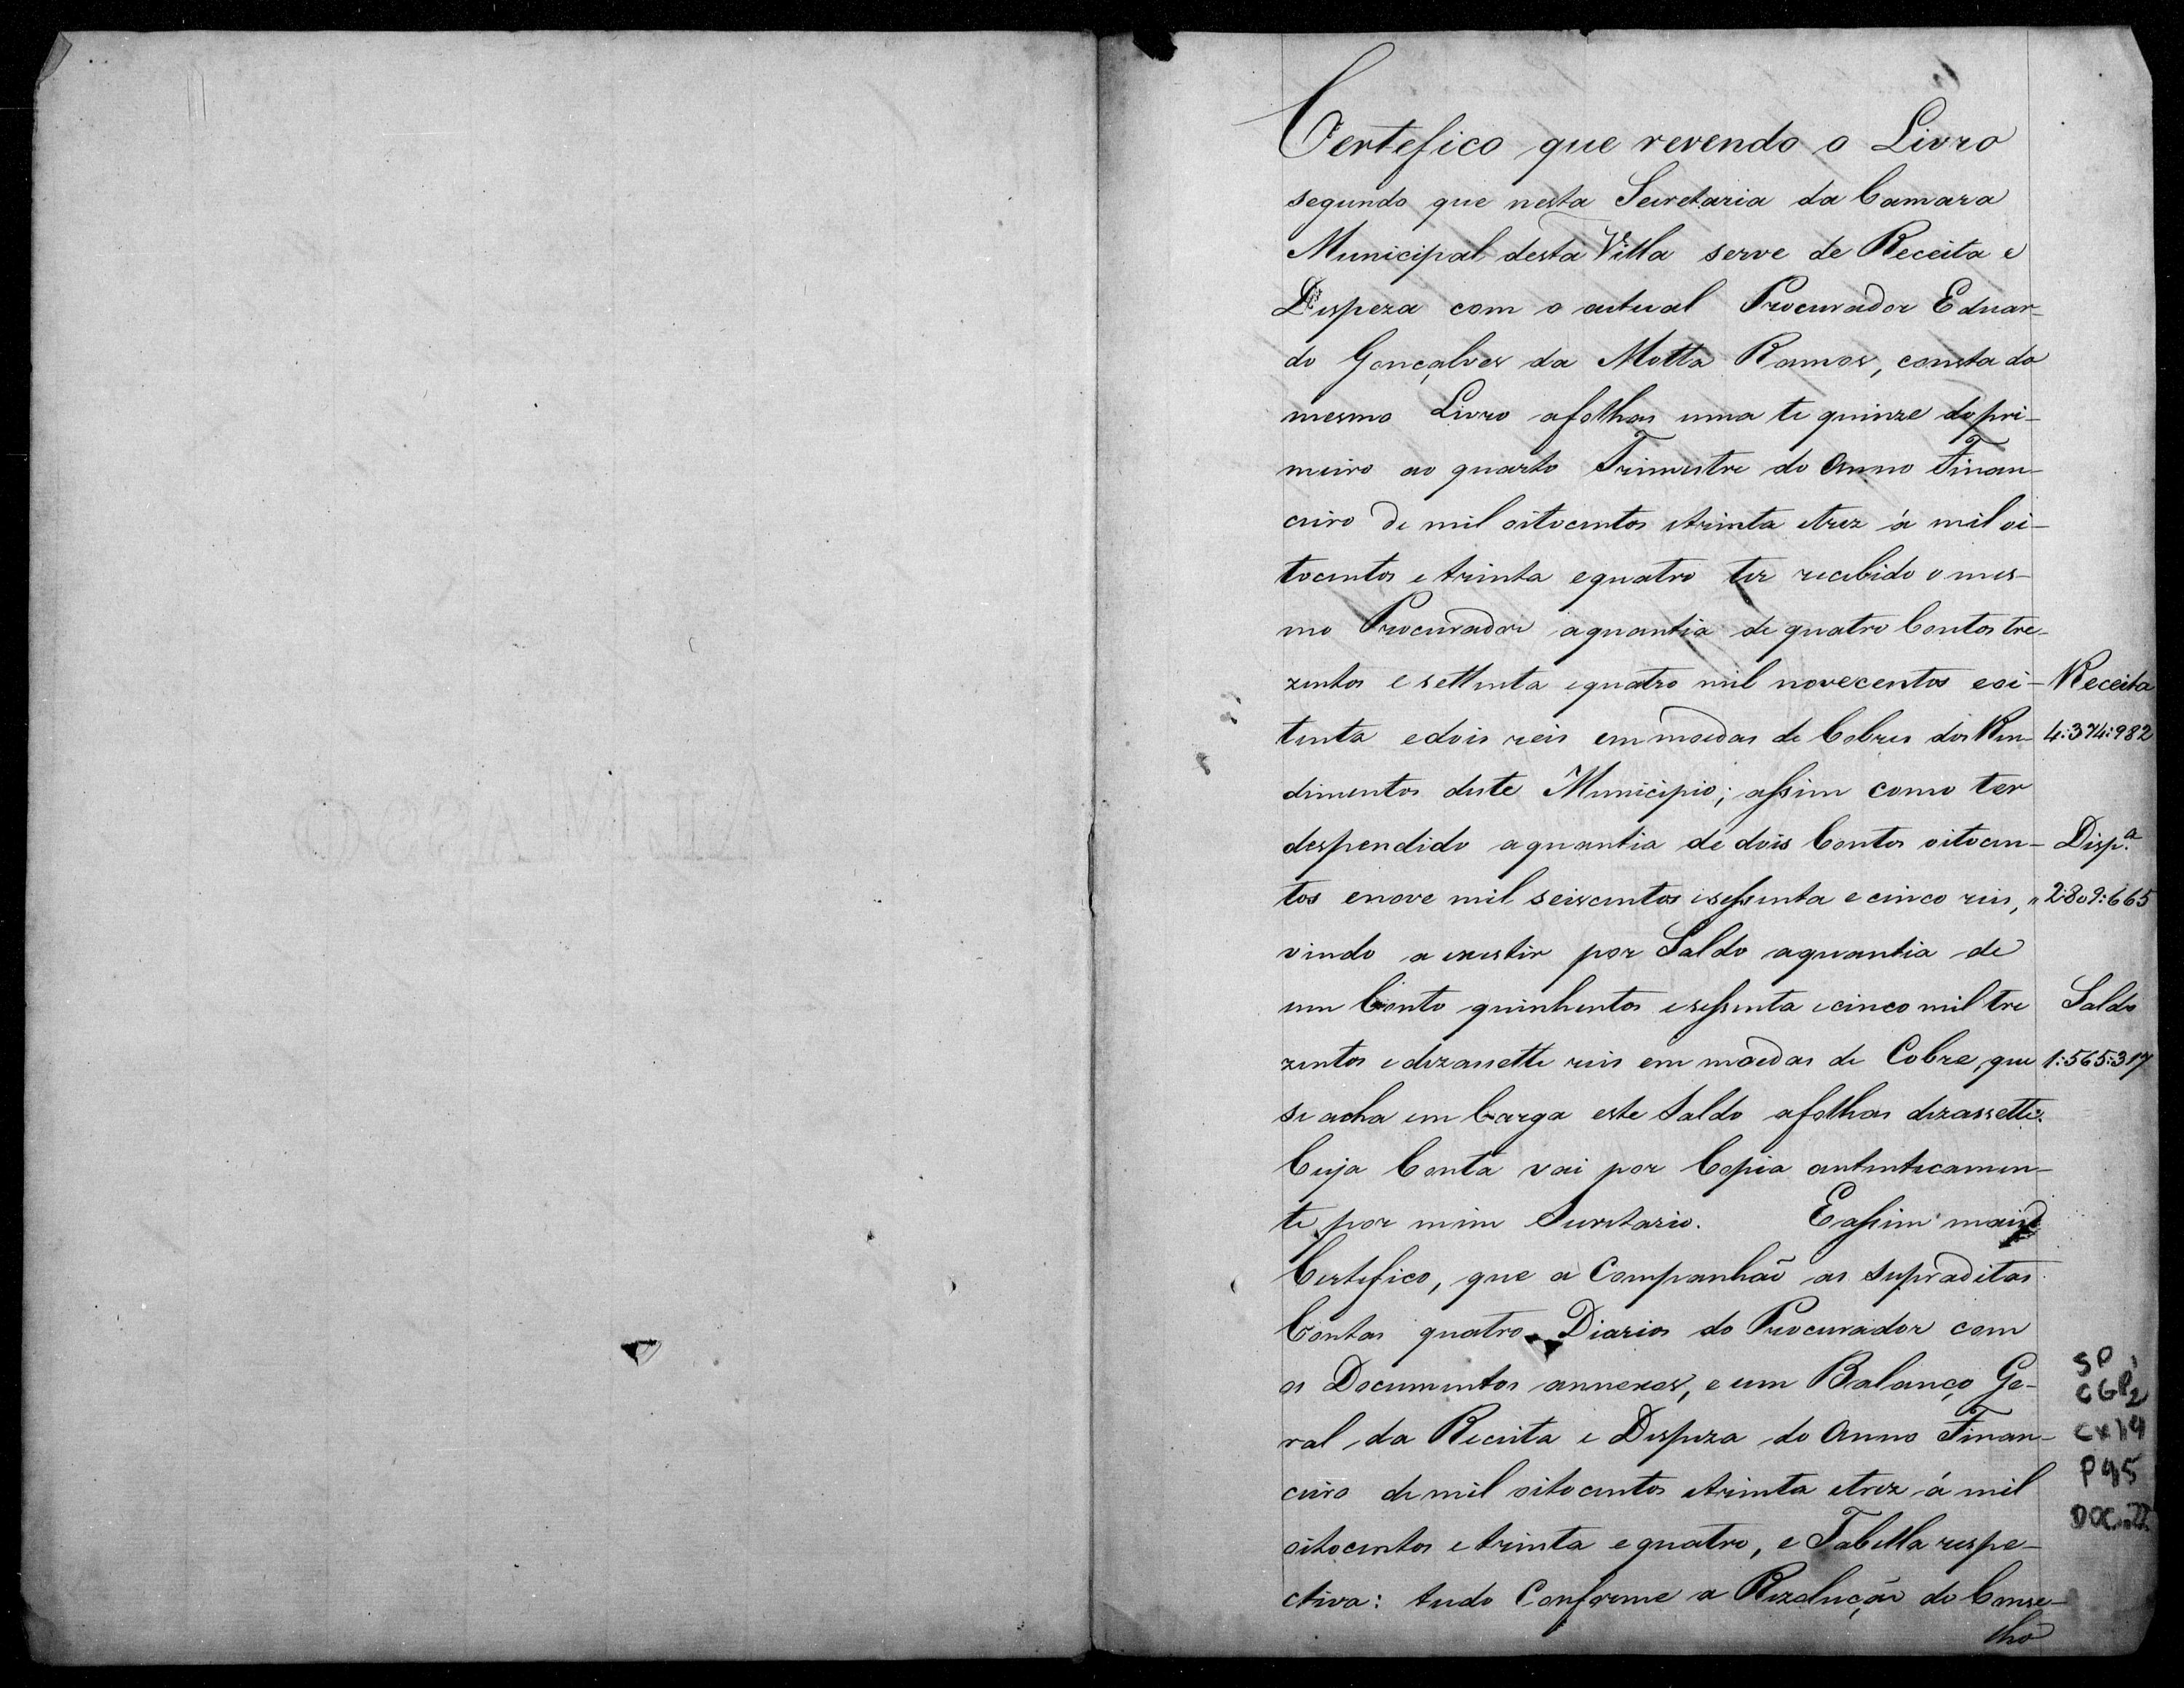 Certefico que revendo o Livro
segundo que nesta Secretaria da Camara
Municipal desta Villa serve de Receita e
Despeza com o actual Procurador Eduar-
do Gonçalves da Motta Ramos, consta do
mesmo Livro afolhas uma te quinze do pri-
meiro ao quarto Trimestre do Anno Finan-
ceiro de mil oitocentos etrinta etrez á mil oi-
tocentos e trinta equatro ter recebido o mes-
mo Procurador aquantia de quatro Contos tre-
zentos e settenta equatro mil novecentos eoi-
Receita
tenta edois reis em moedas de Cobres dos Ren-
4:374:982
dimentos deste Municipio; assim como ter
despendido aquantia de dois Contos oitocen-
Disp.ª
tos enove mil seiscentos esessenta e cinco reis,
" 2:809:665
vindo a existir por Saldo aquantia de
um Conto quinhentos esessenta ecinco mil tre
Saldo
zentos edezasette reis em moedas de Cobre, que
1:565:317
se acha em Carga este Saldo afolhas dezassette.
Cuja Conta vai por Copia autenticamen-
te por mim Secretario. Eassim mais
Certefico, que a Companhão as supraditas
Contas quatro Diarios do Procurador com
os Documentos annexos, e um Balanço Ge-
ral da Receita e Despeza do Anno Finan-
ceiro de mil oitocentos etrinta etrez á mil
oitocentos e trinta equatro, e Tabella respe-
ctiva: tudo Conforme a Rezolução do Conse-
lho
SP
CGP2
CX19
P95
DOC.22